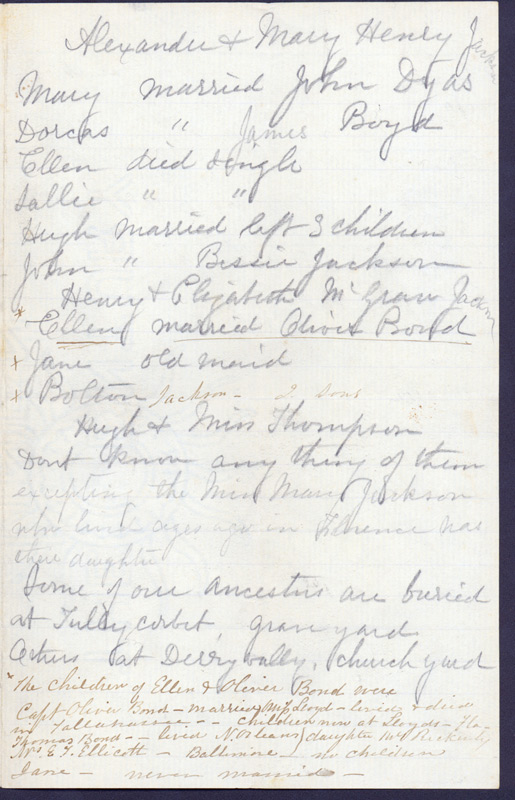 Alexander & Mary Henry Jackson
Mary married John Dyas
Dorcas " James Boyd
Ellen died single
Sallie " "
Hugh married left 3 children
John " Bessie Jackson
Henry & Elizabeth McGraw Jackson
* Ellen married Oliver Bond
+ Jane old maid
+ Bolton Jackson - 2 sons
Hugh & Miss Thompson
Dont know any thing of them
excepting the Miss Mary Jackson
who lived ages ago in Florence was
their daughter
Some of our ancestors are buried
at Tullycorbit graveyard
Others at Derryvally, church yard
* The children of Ellen & Oliver Bond were
Capt Oliver Bond - married Miss Lloyd - lived & died
in Tallahassee - - children now at Lloyds - Fla -
Thomas Bond - - lived N. Orleans daughter Mrs
Mrs E. T. Ellicott - Baltimore - no children
Jane - never married -